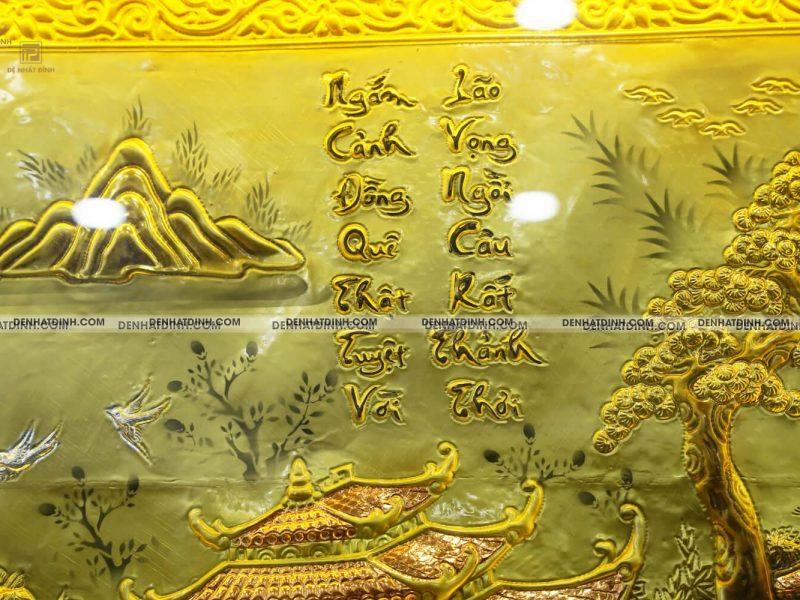 ĐỆ NHẤT ĐỈNH
Lão Vọng Ngồi Câu Rất Thảnh Thơi
Ngắm Cảnh Đồng Quê Thật Tuyệt Vời
NHATDINH.COM DENHATDINH.COM DENHATDINH.COM DENHATDINH.COM DENHATDINH.COM